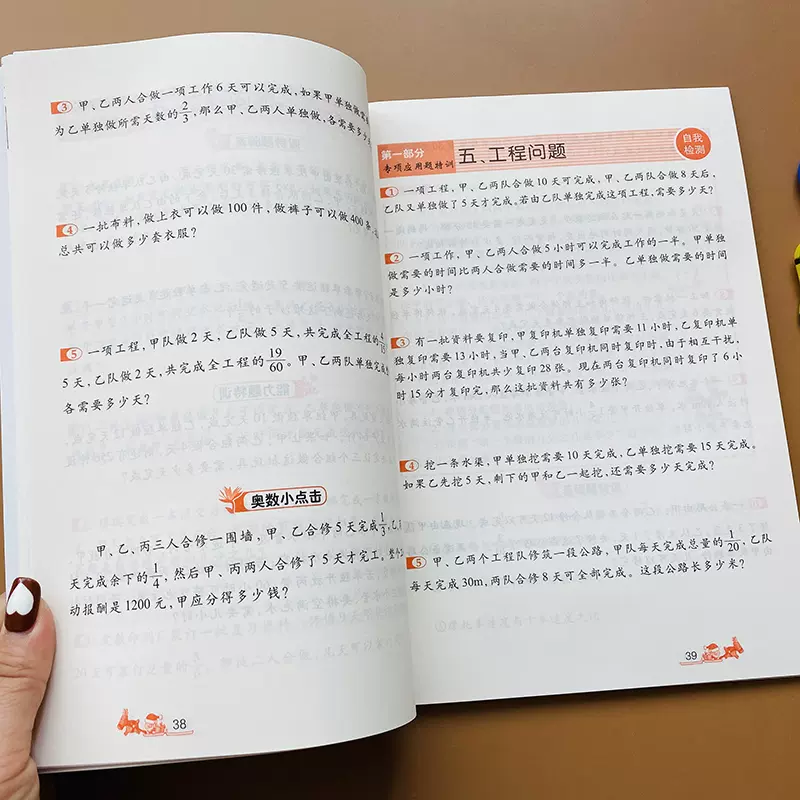 ③ 甲、乙两人合做一项工作6天可以完成,如果甲单独做需
为乙单独做所需天数的2/3,那么甲、乙两人单独做,各需要多少
④ 一批布料,做上衣可以做100件,做裤子可以做400条
总共可以做多少套衣服?
⑤ 一项工程,甲队做2天,乙队做5天,共完成全工程的4/15
5天,乙队做2天,共完成全工程的19/60。甲、乙两队单独完成
各需要多少天?
奥数小点击
甲、乙、丙三人合修一围墙,甲、乙合修5天完成1/3,乙、
天完成余下的1/4,然后甲、丙两人合修了5天才完工。整个
动报酬是1200元,甲应分得多少钱?
38
第一部分
专项应用题特训
五、工程问题
自我
检测
① 一项工程,甲、乙两队合做10天可完成,甲、乙两队合做8天后,
乙队又单独做了5天才完成。若由乙队单独完成这项工程,需要多少天?
② 一项工作,甲、乙两人合做5小时可以完成工作的一半。甲单独
做需要的时间比两人合做需要的时间多一半。乙单独做需要的时间
是多少小时?
③ 有一批资料要复印,甲复印机单独复印需要11小时,乙复印机单
独复印需要13小时,当甲、乙两台复印机同时复印时,由于相互干扰,
每小时两台复印机共少复印28张。现在两台复印机同时复印了6小
时15分才复印完,那么这批资料共有多少张?
④ 挖一条水渠,甲单独挖需要10天完成,乙单独挖需要15天完成。
如果乙先挖5天,剩下的甲和乙一起挖,还需要多少天完成?
⑤ 甲、乙两个工程队修筑一段公路,甲队每天完成总量的1/20,乙队
每天完成30m,两队合修8天可全部完成。这段公路长多少米?
39